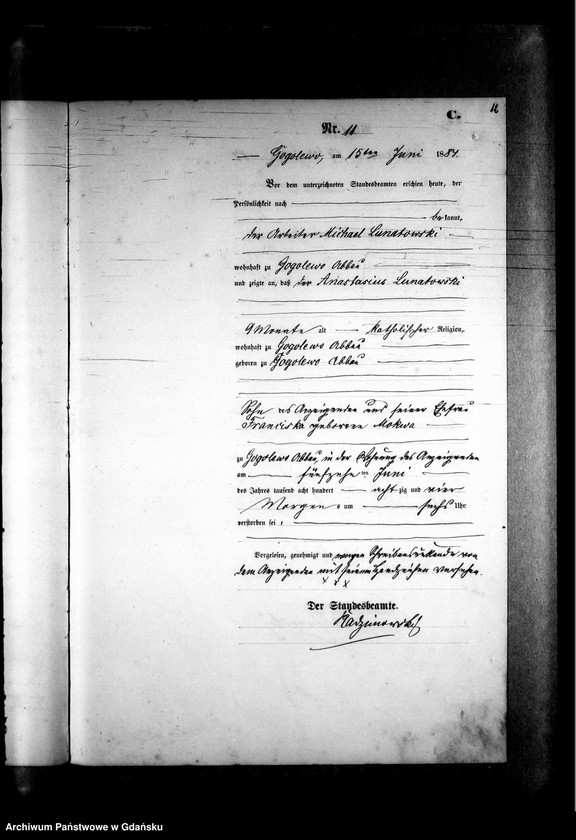 11
C.
Nr. 11
Gogolewo, am 15ten Juni 1884.
Vor dem unterzeichneten Standesbeamten erschien heute, der
Persönlichkeit nach
bekannt,
der Arbeiter Michael Lunatowski
wohnhaft zu Gogolewo Abbau
und zeigte an, daß der Anastasius Lunatowski
9 Monate alt katholischer Religion,
wohnhaft zu Gogolewo Abbau
geboren zu Gogolewo Abbau
Sohn des Anzeigenden und seiner Ehefrau
Franciska geborene Mokwa
zu Gogolewo Abbau, in der Wohnung des Anzeigenden
am fünfzehnten Juni
des Jahres tausend acht hundert achtzig und vier
Morgens um sechs Uhr
verstorben sei,
Vorgelesen, genehmigt und wegen Schreibensunkunde von
dem Anzeigenden mit seinem Handzeichen versehen.
x x x
Der Standesbeamte.
Radzimowski
Archiwum Państwowe w Gdańsku